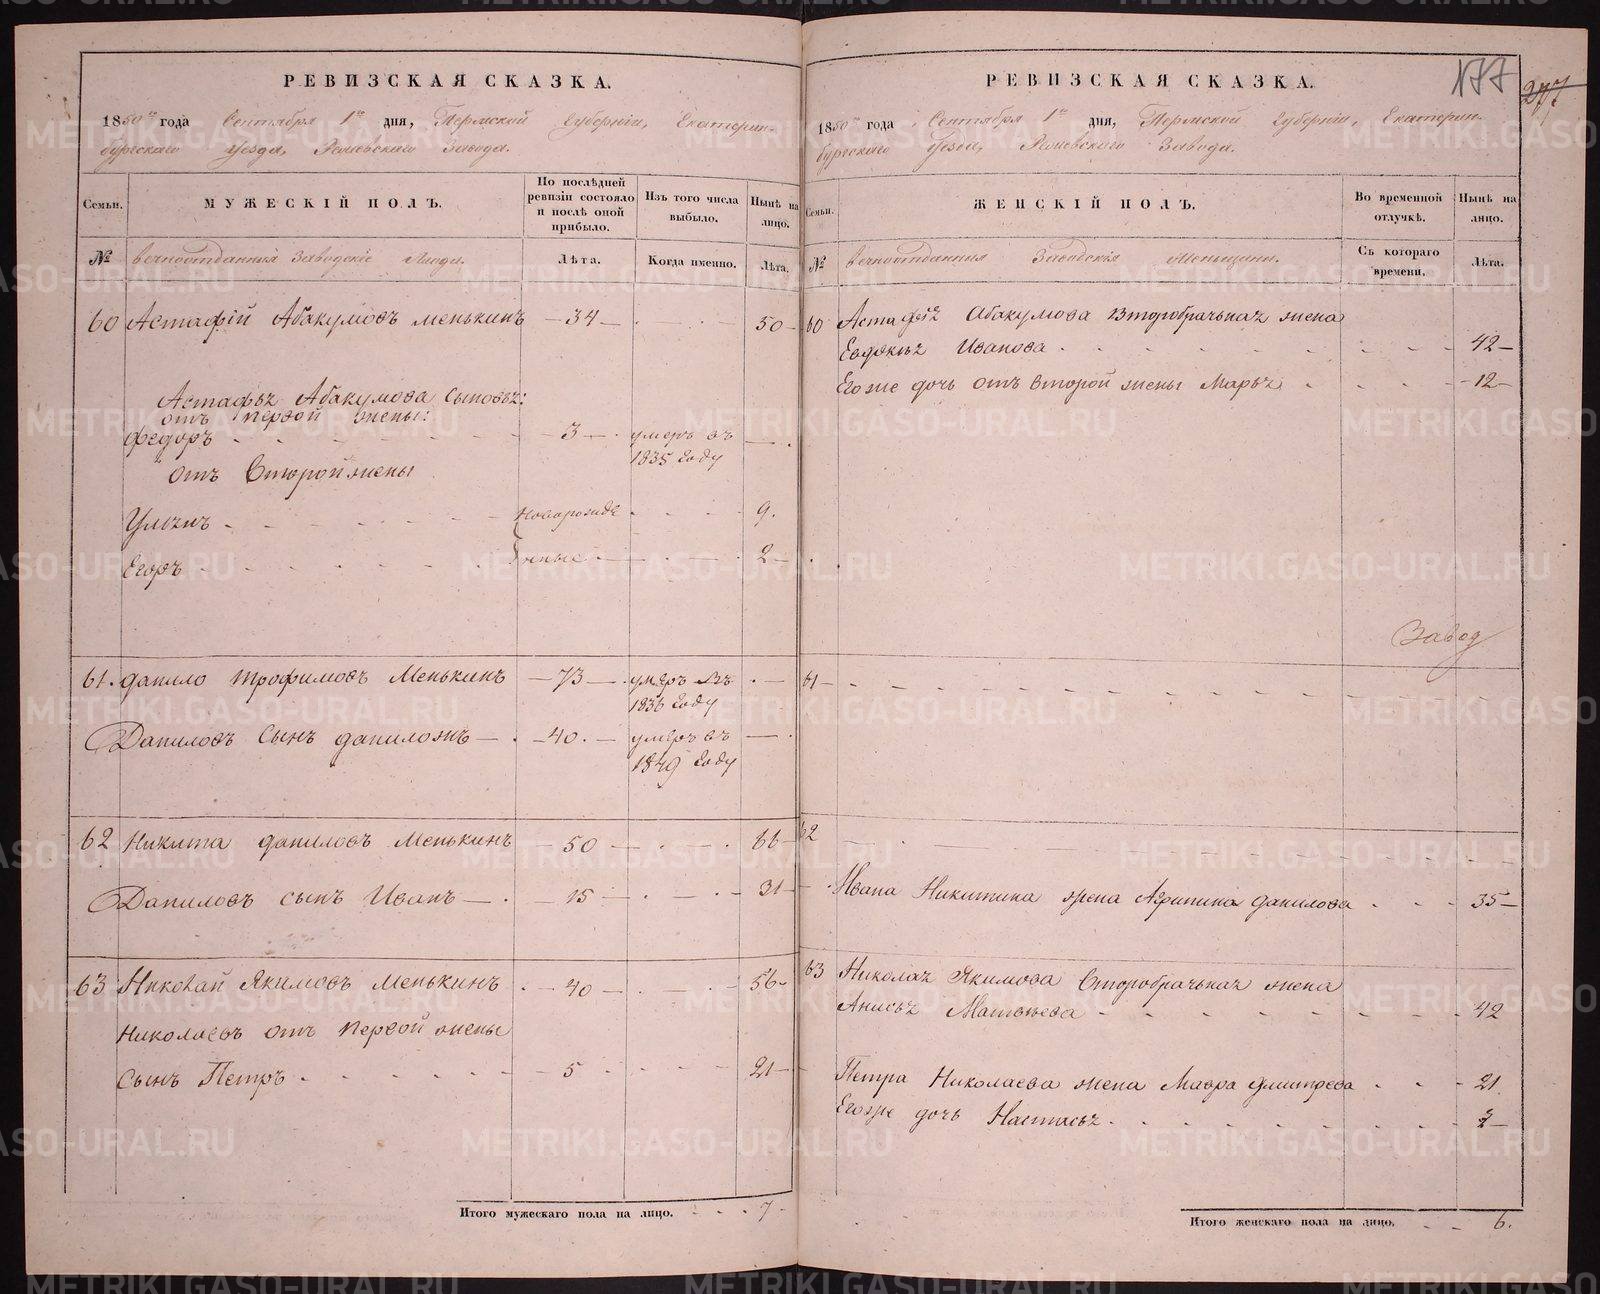 РЕВИЗСКАЯ СКАЗКА.
1850го года Сентября 1го дня, Пермской Губерніи, Екатерин-
бургскаго Уезда, Режевскаго Завода.
Семьи.
МУЖЕСКІЙ ПОЛЪ.
По послѣдней ревизіи состояло и послѣ оной прибыло.
Изъ того числа выбыло.
Нынѣ на лицо.
№
вечноотданныя Заводскіе Люди.
Лѣта.
Когда именно.
Лѣта.
60 Астафій Абакумовъ Менькинъ — 34 — 50
Астафья Абакумова Сыновья:
отъ первой жены:
Федоръ — 3 — умеръ въ
1835 Году
отъ Второй жены
Ульянъ Новорожде 9.
Егоръ нные 2
61. Данило Трофимовъ Менькинъ — 73 — умеръ въ
1836 Году
Даниловъ Сынъ Даниложъ — 40. — умеръ въ
1849 Году
62 Никита Даниловъ Менькинъ — 50 — 66
Даниловъ сынъ Иванъ — 15 — 31
63 Николай Якимовъ Менькинъ — 40 — 56
Николаевъ отъ Первой жены
Сынъ Петръ — 5 21
Итого мужескаго пола на лицо. 7
РЕВИЗСКАЯ СКАЗКА.
177
277
1850го года Сентября 1го дня, Пермской Губерніи, Екатерин-
бургскаго Уезда, Режевскаго Завода.
Семьи.
ЖЕНСКІЙ ПОЛЪ.
Во временной отлучкѣ.
Нынѣ на лицо.
№
вечноотданныя Заводскія Меньщины.
Съ котораго времени.
Лѣта.
60 Астафья Абакумова Второбрачная жена
Евдокья Иванова 42
Его же дочь отъ Второй жены Марья 12
Завод
61
62
Ивана Никитина жена Агрипина Данилова 35
63 Николая Якимова Второбрачная жена
Анисья Матвеева 42
Петра Николаева жена Мавра Дмитрева 21
Егоже дочь Настасья 2
Итого женскаго пола на лицо. 6.
METRIKI.GASO-URAL.RU